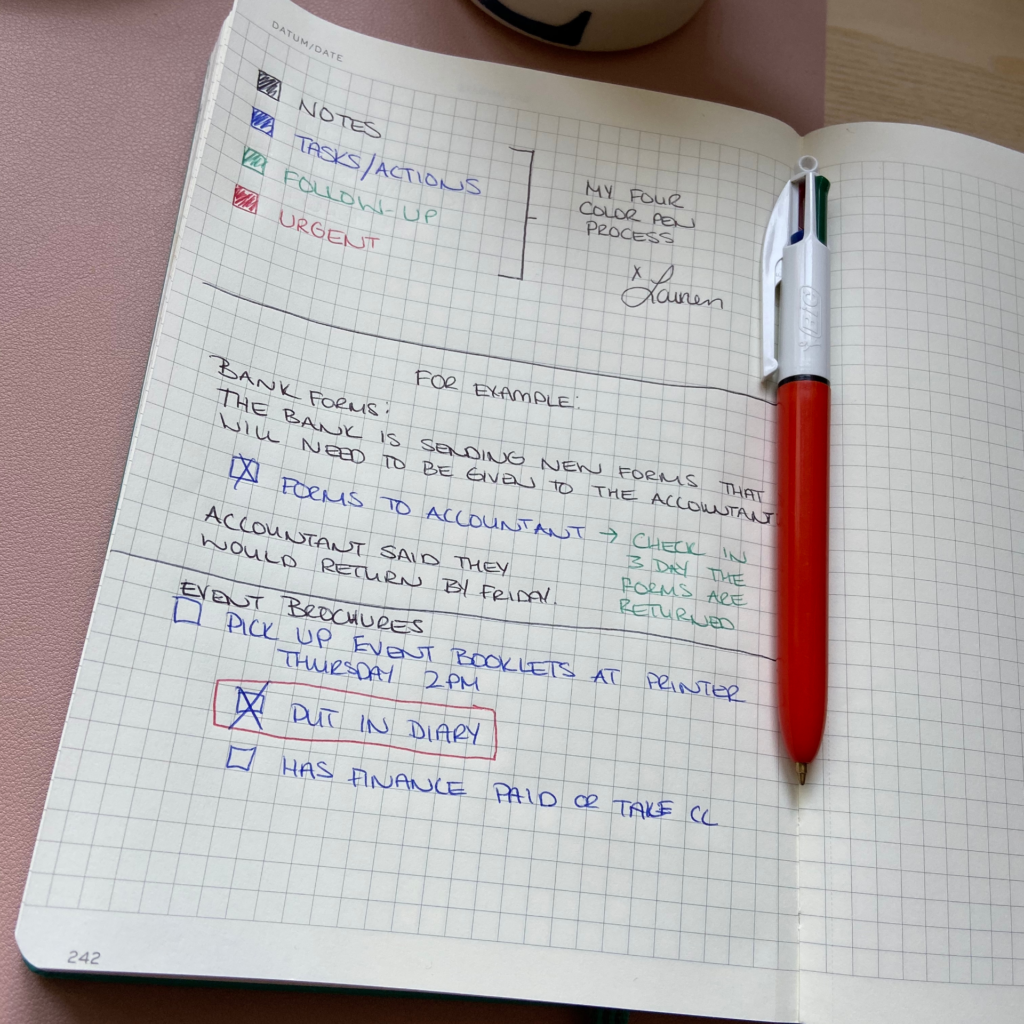 DATUM/DATE
NOTES
TASKS/ACTIONS
FOLLOW-UP
URGENT
MY FOUR
COLOR PEN
PROCESS
x Lauren
FOR EXAMPLE:
BANK FORMS:
THE BANK IS SENDING NEW FORMS THAT
WILL NEED TO BE GIVEN TO THE ACCOUNTANT
FORMS TO ACCOUNTANT → CHECK IN
3 DAY THE
FORMS ARE
RETURNED
ACCOUNTANT SAID THEY
WOULD RETURN BY FRIDAY.
EVENT BROCHURES
PICK UP EVENT BOOKLETS AT PRINTER
THURSDAY 2PM
PUT IN DIARY
HAS FINANCE PAID OR TAKE CC
242
BIC